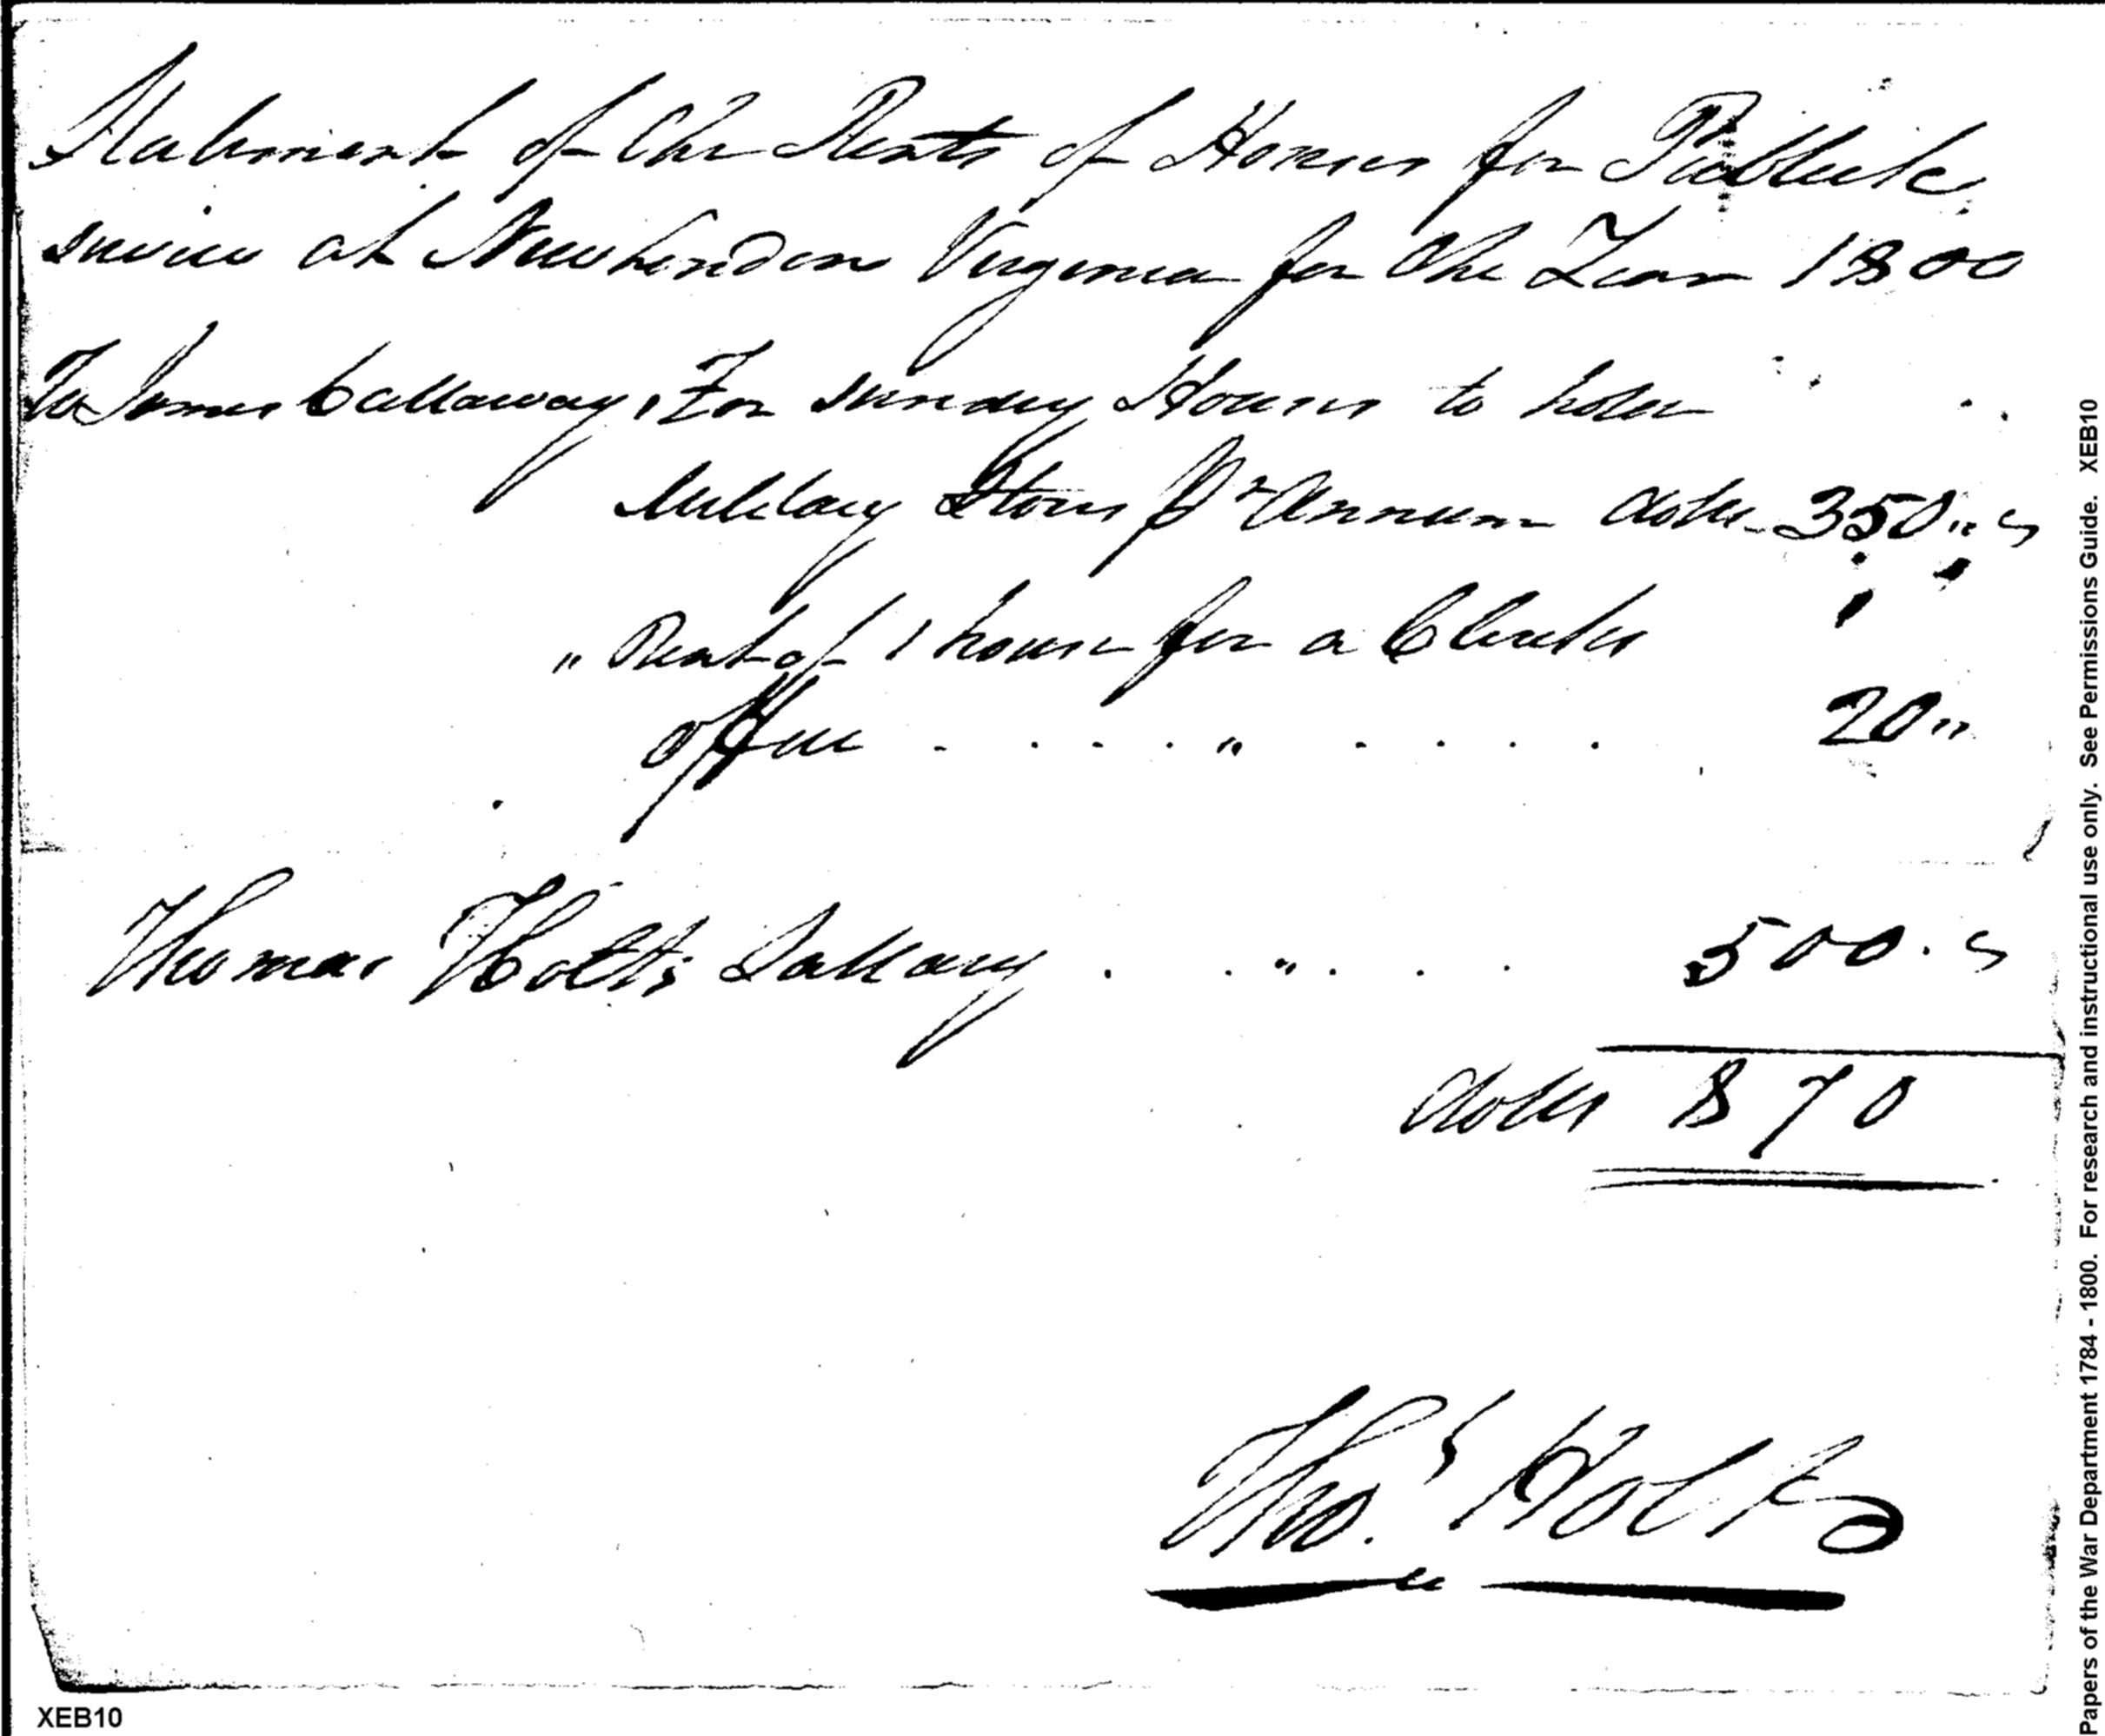 Statement of the Rents of Houses for Publick
service at New London Virginia for the Year 1800
To James Callaway, For sundry Houses to hold
Military Stores Pr Annum dolls 350 "
" Rent of 1 house for a Clerks
office - . . . " . . . . 20 "
Thomas Holts Sallary . . " . . . 500 .
dolls 870
Thos. Holt
XEB10
Papers of the War Department 1784 - 1800. For research and instructional use only. See Permissions Guide. XEB10